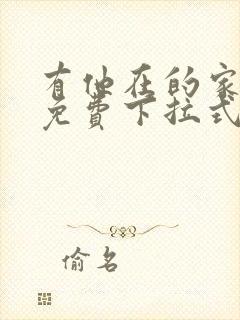 有他在的家
免費下拉式
偷名